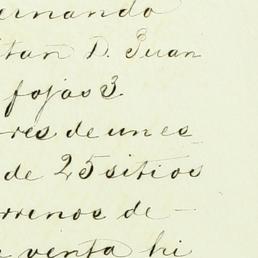 ernando
itan D. Juan
fojas 3.
res de un es
de 25 sitios
rrenos de —
e venta hi